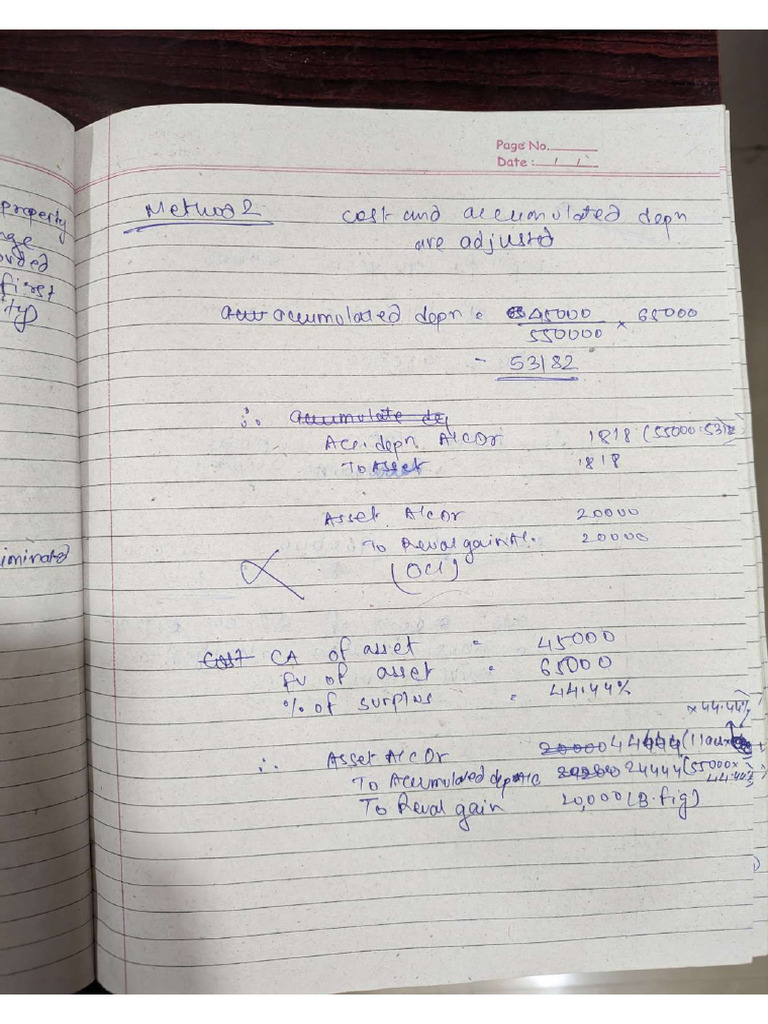 property
nge
ovided
first
ity)
iminated
Page No.
Date : / /
Method 2 cost and accumulated depn
are adjusted
accumulated depn = 45000 × 65000
550000
= 53182
∴ accumulate de
Acc. depn. A/c Dr 1818 (55000-5318
To Asset 1818
Asset A/c Dr 20000
To Reval gain A/c. 20000
(OCI)
Cost CA of asset = 45000
fv of asset = 65000
% of surplus = 44.44%
× 44.44%
∴ Asset A/c Dr 20000 44444 (1 lac
To Accumulated dep A/c 24444 (55000×
44.44%
To Reval gain 20,000 (B.fig)